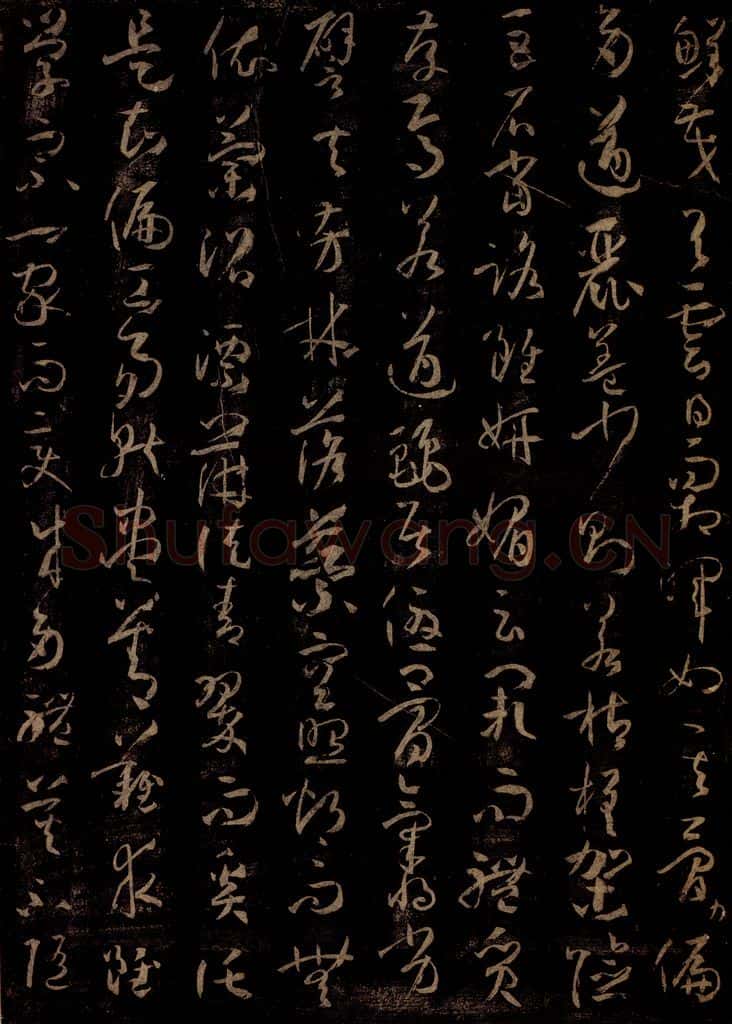 鮮茂與雲日而相暉如其骨力偏
多遒麗蓋少則若枯槎架險
巨石當路雖妍媚云闕而體質
存焉若遒麗居優骨氣將劣
譬夫芳林落蘂空照灼而無
依蘭沼漂蓱徒青翠而奚託
是知偏工易就盡善難求雖
學宗一家而變成多體莫不隨
Shufawang.CN